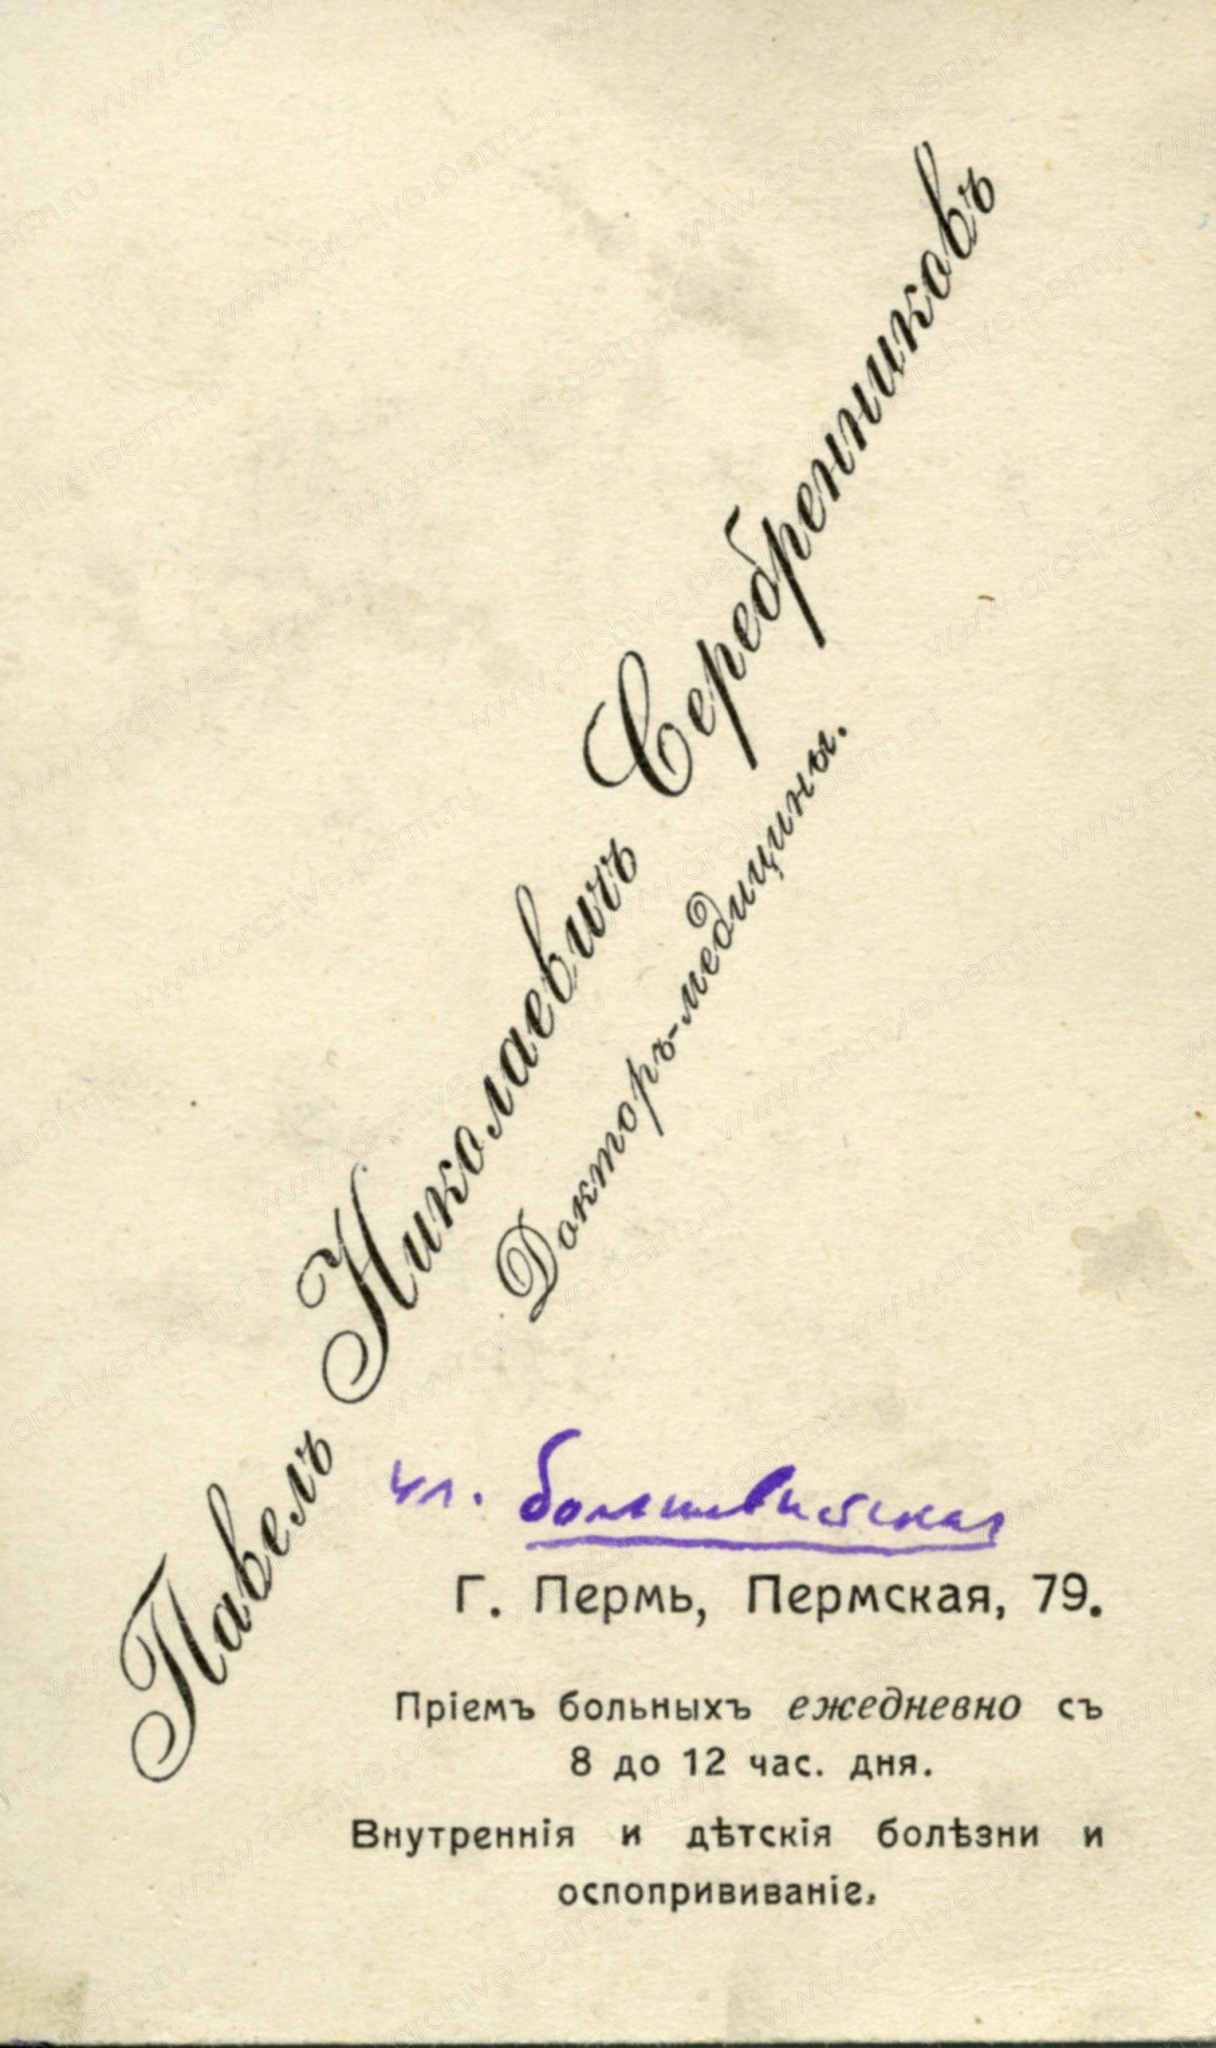 Павелъ Николаевичъ Серебренниковъ
Докторъ-медицины.
ул. большевистская
Г. Пермь, Пермская, 79.
Пріемъ больныхъ ежедневно съ
8 до 12 час. дня.
Внутреннія и дѣтскія болѣзни и
оспопрививаніе.
www.archive.perm.ru